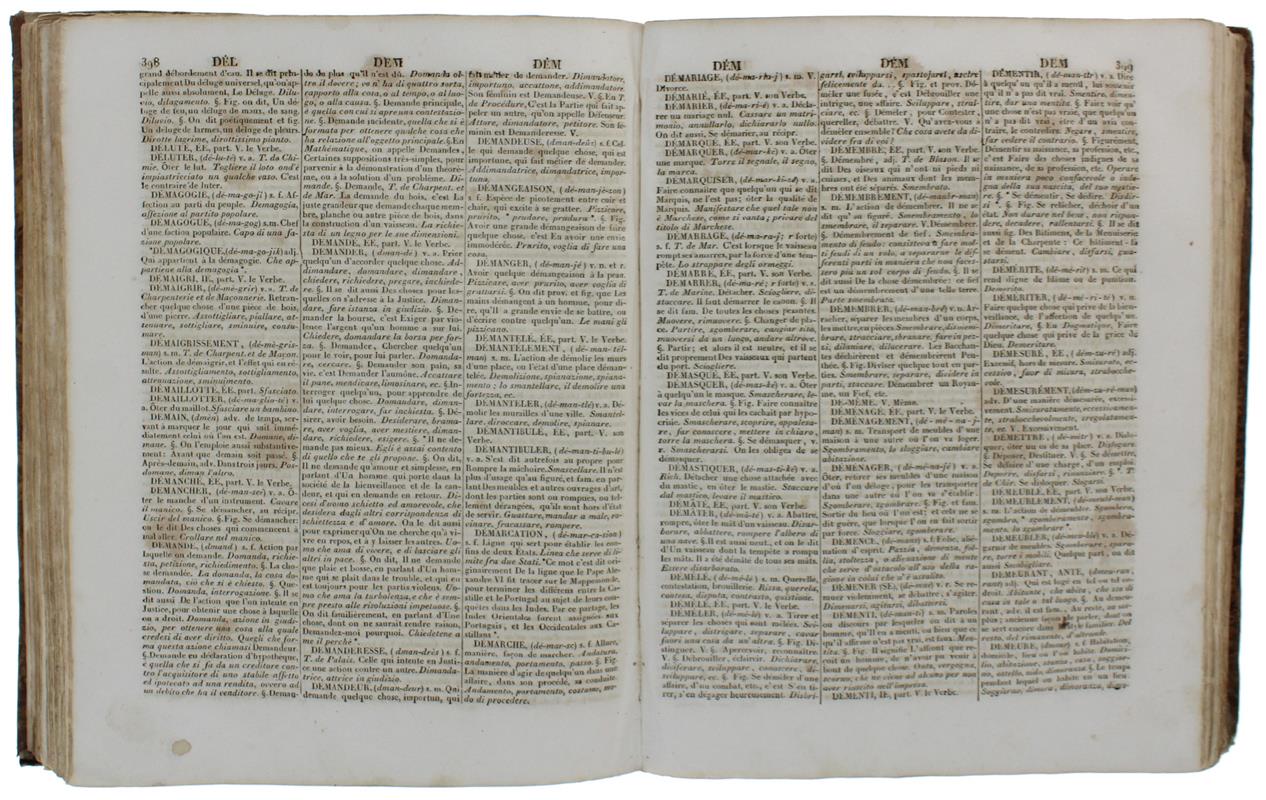 398 DÉL DEM DÉM
grand débordement d'eau. Il se dit prin-
cipalement Du déluge universel, qu'on ap-
pelle aussi absolument, Le Déluge. Dilu-
vio, dilagamento. §. On dit, Un dé-
luge de feu, un déluge de maux, de sang.
Diluvio. §. On dit poétiquement et fig.
Un déluge de larmes, un déluge de pleurs.
Dirotte lagrime, dirottissimo pianto.
DÉLUTÉ, ÉE, part. V. le Verbe.
DÉLUTER, (dé-lu-té) v. a. T. de Chi-
mie. Ôter le lut. Togliere il loto ond'è
impiastricciato un qualche vaso. C'est
le contraire de luter.
DÉMAGOGIE, (dé-ma-go-ji) s. f. Af-
fection au parti du peuple. Demagogia,
affezione al partito popolare.
DÉMAGOGUE, (dé-ma-gog) s.m. Chef
d'une faction populaire. Capo di una fa-
zione popolare.
DÉMAGOGIQUE, (dé-ma-go-jik) adj.
Qui appartient à la démagogie. Che ap-
partiene alla demagogia.
DÉMAIGRI, IE, part. V. le Verbe.
DÉMAIGRIR, (dé-mé-grir) v. a. T. de
Charpenterie et de Maçonnerie. Retran-
cher quelque chose d'une pièce de bois,
d'une pierre. Assottigliare, pialiare, at-
tenuare, sottigliare, sminuire, consu-
mare.
DÉMAIGRISSEMENT, (dé-mè-gris-
man) s. m. T. de Charpent. et de Maçon.
L'action de démaigrir, et l'effet qui en ré-
sulte. Assottigliamento, sottigliamento,
attenuazione, sminuimento.
DÉMAILLOTTÉ, ÉE, part. Sfasciato.
DÉMAILLOTTER, (dé-ma-glio-té) v.
a. Ôter du maillot. Sfasciare un bambino.
DEMAIN, (dmein) adv. de temps, ser-
vant à marquer le jour qui suit immé-
diatement celui où l'on est. Domane, di-
mane. §. On l'emploie aussi substantive-
ment: Avant que demain soit passé. §.
Après-demain, adv. Dans trois jours. Pos-
domane, diman l'altro.
DÉMANCHÉ, ÉE, part. V. le Verbe.
DÉMANCHER, (dé-man-sce) v. a. Ô-
ter le manche d'un instrument. Cavare
il manico. §. Se démancher, au récipr.
Uscir del manico. §. Fig. Se démancher:
on le dit Des choses qui commencent à
mal aller. Crollare nel manico.
DEMANDE, (dmand) s. f. Action par
laquelle on demande. Domanda, richie-
sta, petizione, richiedimento. §. La cho-
se demandée. La domanda, la cosa do-
mandata, ciò che si è chiesto. §. Que-
stion. Domanda, interrogazione. §. Il se
dit aussi De l'action que l'on intente en
Justice, pour obtenir une chose à laquelle
on a droit. Domanda, azione in giudi-
zio, per ottenere una cosa alla quale
credesi di aver diritto. Quegli che for-
ma questa azione chiamasi Demandeur.
§. Demande en déclaration d'hypothèque,
è quella che si fa da un creditore con-
tro l'acquisitore di uno stabile affetto
ed ipotecato ad una rendita, ovvero ad
un debito che ha il venditore. §. Deman-
do du plus qu'il n'est dû. Domanda ol-
tre il dovere; ve n'ha di quattro sorta,
rapporto alla cosa, o al tempo, o al luo-
go, o alla causa. §. Demande principale,
è quella con cui si apre una contestazio-
ne. §. Demande incidente, quella che si è
formata per ottenere qualche cosa che
ha relazione all'oggetto principale. §. En
Mathématique, on appelle Demandes,
Certaines suppositions très-simples, pour
parvenir à la démonstration d'un théorè-
me, ou à la solution d'un problème. Di-
mande. §. Demande, T. de Charpent. et
de Mar. La demande du bois, c'est La
juste grandeur que demande chaque mem-
bre, planche ou autre pièce de bois, dans
la construction d'un vaisseau. La richie-
sta di un legno per le sue dimensioni.
DEMANDÉ, ÉE, part. V. le Verbe.
DEMANDER, (dman-dé) v. a. Prier
quelqu'un d'accorder quelque chose. Ad-
dimandare, domandare, dimandare,
chiedere, richiedere, pregare, inchiede-
re. §. Il se dit aussi Des choses pour les-
quelles on s'adresse à la Justice. Diman-
dare, fare istanza in giudizio. §. De-
mander la bourse, c'est Exiger par vio-
lence l'argent qu'un homme a sur lui.
Chiedere, domandare la borsa per for-
za. §. Demander, Chercher quelqu'un
pour le voir, pour lui parler. Domanda-
re, cercare. §. Demander son pain, sa
vie, c'est Demander l'aumône. Accattare
il pane, mendicare, limosinare, ec. §. In-
terroger quelqu'un, pour apprendre de
lui quelque chose. Domandare, diman-
dare, interrogare, far inchiesta. §. Dé-
sirer, avoir besoin. Desiderare, brama-
re, aver voglia, aver mestiere, diman-
dare, richiedere, esigere. §. Il ne de-
mande pas mieux. Egli è assai contento
di quello che se gli propone. §. On dit,
Il ne demande qu'amour et simplesse, en
parlant d'Un homme qui porte dans la
société de la bienveillance et de la can-
deur, et qui en demande en retour. Di-
cesi d'uomo schietto ed amorevole, che
desidera dagli altri corrispondenza di
schiettezza e d'amore. On le dit aussi
pour exprimer qu'On ne cherche qu'à vi-
vre en repos, et à y laisser les autres. Uo-
mo che ama di vivere, e di lasciare gli
altri in pace. §. On dit, Il ne demande
que plaie et bosse, en parlant d'Un hom-
me qui se plait dans le trouble, et qui en
est toujours pour les partis violens. Uo-
mo che ama la turbolenza, e che è sem-
pre presto alle risoluzioni impetuose. §.
On dit familièrement, en parlant d'Une
chose, dont on ne sauroit rendre raison,
Demandez-moi pourquoi. Chiedetene a
me il perchè.
DEMANDERESSE, (dman-drès) s. f.
T. de Palais. Celle qui intente en Justi-
ce une action contre un autre. Dimanda-
trice, attrice in giudizio.
DEMANDEUR, (dman-deur) s. m. Qui
demande quelque chose, importun, qui
fait métier de demander. Dimandatore,
importuno, accattone, addimandatore.
Son féminin est Demandeuse. V. §. En T.
de Procédure, C'est La partie qui fait ap-
peler un autre, qu'on appelle Défenseur.
Attore, dimandatore, petitore. Son fé-
minin est Demanderesse. V.
DEMANDEUSE, (dman-deüs) s. f. Cel-
le qui demande quelque chose, qui est
importune, qui fait métier de demander.
Addimandatrice, dimandatrice, impor-
tuna.
DÉMANGEAISON, (dé-man-jè-zon)
s. f. Espèce de picotement entre cuir et
chair, qui excite à se gratter. Pizzicore,
prurito, prudore, prudura. §. Fig.
Avoir une grande démangeaison de faire
quelque chose, c'est En avoir une envie
immodérée. Prurito, voglia di fare una
cosa.
DÉMANGER, (dé-man-jé) v. n. et r.
Avoir quelque démangeaison à la peau.
Pizzicare, aver prurito, aver voglia di
grattarsi. §. On dit prov. et fig. que Les
mains démangent à un homme, pour di-
re, qu'Il a grande envie de se battre, ou
d'écrire contre quelqu'un. Le mani gli
pizzicano.
DÉMANTELÉ, ÉE, part. V. le Verbe.
DÉMANTELLEMENT, (dé-man-tèl-
man) s. m. L'action de démolir les murs
d'une place, ou l'état d'une place déman-
telée. Demolizione, spianazione, spiana-
mento; lo smantellare, il demolire una
fortezza, ec.
DÉMANTELER, (dé-man-tlé) v. a. Dé-
molir les murailles d'une ville. Smantel-
lare, diroccare, demolire, spianare.
DÉMANTIBULÉ, ÉE, part. V. son
Verbe.
DÉMANTIBULER, (dé-man-ti-bu-lé)
v. a. S'est dit autrefois au propre pour
Rompre la mâchoire. Smascellare. Il n'est
plus d'usage qu'au figuré, et fam. en par-
lant Des meubles et autres ouvrages d'art,
dont les parties sont ou rompues, ou tel-
lement dérangées, qu'ils sont hors d'état
de servir. Guastare, mandar a male, ro-
vinare, fracassare, rompere.
DÉMARCATION, (dé-mar-ca-sion)
s. f. Ligne qui sert pour établir les con-
fins de deux États. Linea che serve di li-
mite fra due Stati. Ce mot s'est dit origi-
nairement De la ligne que le Pape Ale-
xandre VI fit tracer sur le Mappemonde,
pour terminer les différens entre la Ca-
stille et le Portugal au sujet de leurs con-
quêtes dans les Indes. Par ce partage, les
Indes Orientales forent assignées aux
Portugais, et les Occidentales aux Ca-
stillans.
DÉMARCHE, (dé-mar-sc) s. f. Allure,
manière, façon de marcher. Andatura,
andamento, portamento, passo. §. Fig.
La manière d'agir de quelqu'un dans une
affaire, dans son procédé, sa conduite.
Andamento, portamento, costume, mo-
do di procedere.
DÉM DÉM DEM 399
DÉMARIAGE, (dé-ma-ria-j) s. m. V.
Divorce.
DÉMARIÉ, ÉE, part. V. son Verbe.
DÉMARIER, (dé-ma-ri-é) v. a. Décla-
rer un mariage nul. Cassare un matri-
monio, annullarlo, dichiararlo nullo.
On dit aussi. Se démarier, au récipr.
DÉMARQUÉ, ÉE, part. V. le Verbe.
DÉMARQUER, (dé-mar-ké) v. a. Ôter
une marque. Torre il segnale, il segno,
la marca.
DÉMARQUISER, (dé-mar-ki-ze) v. a.
Faire connaître que quelqu'un qui se dit
Marquis, ne l'est pas; ôter la qualité de
Marquis. Manifestare che quel tale non
è Marchese, come si vanta; privare del
titolo di Marchese.
DÉMARRAGE, (dé-ma-ra-j; r forte)
s. f. T. de Mar. C'est lorsque le vaisseau
rompt ses amarres, par la force d'une tem-
pête. Lo strappare degli ormeggi.
DÉMARRÉ, ÉE, part. V. son Verbe.
DÉMARRER, (dé-ma-ré; r forte) v. s.
T. de Marine. Détacher. Sciogliere, di-
staccare. Il faut démarrer le canon. §. Il
se dit fam. De toutes les choses pesantes.
Muovere, rimuovere. §. Changer de pla-
ce. Partire, sgomberare, cangiar sito,
muoversi da un luogo, andare altrove.
§. Partir; et alors il est neutre, et il se
dit proprement Des vaisseaux qui partent
du port. Sciogliere.
DÉMASQUÉ, ÉE, part. V. le Verbe.
DÉMASQUER, (dé-mas-ké) v. a. Ôter
à quelqu'un le masque. Smascherare, le-
var la maschera. §. Fig. Faire connaître
les vices de celui qui les cachait par hypo-
crisie. Smascherare, scoprire, appalesa-
re, far conoscere, mettere in chiaro,
torre la maschera. §. Se démasquer, v.
r. Smascherarsi. On les obligea de se
démasquer.
DÉMASTIQUER, (dé-mas-ti-ké) v. a.
Rich. Detacher une chose attachée avec
du mastic, en ôter le mastic. Staccare
dal mastico, levare il mastico.
DÉMÂTÉ, ÉE, part. V. son Verbe.
DÉMÂTER, (dé-mâ-té) v. a. Abattre,
rompre, ôter le mât d'un vaisseau. Disar-
borare, abbattere, rompere l'albero di
una nave. §. Il est aussi neutre, et on le dit
d'Un vaisseau dont la tempête a rompu
les mâts. Il a été démâté de tous ses mâts.
Essere disarborato.
DÉMÊLÉ, (dé-mé-lé) s. m. Querelle,
contestation, brouillerie. Rissa, querela,
contesa, disputa, contrasto, quistione.
DÉMÊLÉ, ÉE, part. V. le Verbe.
DÉMÊLER, (dé-mê-lé) v. a. Tirer et
séparer les choses qui sont mêlées. Svi-
luppare, distrigare, separare, cavar
fuori una cosa da un'altra. §. Fig. Di-
stinguer. V. §. Apercevoir, reconnaître.
V. §. Débrouiller, éclaircir. Dichiarare,
disciferare, sviluppare, conoscere, di-
sciluppare, ec. §. Fig. Se démêler d'une
affaire, d'un combat, etc., c'est S'en ti-
rer, s'en dégager heureusement. Disbri-
garsi, svilupparsi, spastojarsi, uscire
felicemente da... §. Fig. et prov. Dé-
mêler une fusée, c'est Débrouiller une
intrigue, une affaire. Sviluppare, stral-
ciare, ec. §. Démêler, pour Contester,
quereller, débattre. V. Qu'avez-vous à
démêler ensemble? Che cosa avete da di-
videre fra di voi?
DÉMEMBRÉ, ÉE, part. V. son Verbe.
§. Démembré, adj. T. de Blason. Il se
dit Des oiseaux qui n'ont ni pieds ni
cuisses, et Des animaux dont les mem-
bres ont été séparés. Smembrato.
DÉMEMBREMENT, (dé-manbr-man)
s. m. L'action de démembrer. Il ne se
dit qu'au figuré. Smembramento, lo
smembrare, il separare. V. Démembrer.
§. Démembrement de fief. Smembra-
mento di feudo: consisteva a fare mol-
ti feudi di un solo, a separarne le dif-
ferenti parti in maniera che non faces-
sero più un sol corpo di feudo. §. Il se
dit aussi De la chose démembrée: ce fief
est un démembrement d'une telle terre.
Parte smembrata.
DÉMEMBRER, (dé-man-bré) v. a. Ar-
racher, séparer les membres d'un corps,
les mettre, en pièces. Smembrare, dismem-
brare, stracciare, sbranare, fare in pez-
zi, dilaniare, dilacerare. Les Bacchan-
tes déchirèrent et démembrèrent Pen-
thée. §. Fig. Diviser quelque tout en par-
ties. Smembrare, separare, dividere in
parti, staccare. Démembrer un Royau-
me, un Fief, etc.
DE-MÊME, V. Même.
DÉMÉNAGÉ, ÉE, part. V. le Verbe.
DÉMÉNAGEMENT, (dé-mé-na-j-
man) s. m. Transport de meubles d'une
maison à une autre où l'on va loger.
Sgombramento, lo sloggiare, cambiare
abitazione.
DÉMÉNAGER, (dé-mé-na-jé) v. a.
Ôter, retirer ses meubles d'une maison
d'où l'on déloge, pour les transporter
dans une autre où l'on va s'établir.
Sgomberare, sgombrare. §. Fig. et fam.
Sortir du lieu où l'on est; et cela ne se
dit guère, que lorsque l'on en fait sortir
par force. Sloggiare, sgombrare.
DÉMENCE, (dé-mans) s. f. Folie, alié-
nation d'esprit. Pazzia, demenza, fol-
lia, stolidezza, o alienazione di mente
che serve d'ostacolo all'uso della ra-
gione in colui che n'è assalito.
DÉMENER (SE), (dé-mené) v. r. Se re-
muer violemment, se débattre, s'agiter.
Dimenarsi, agitarsi, dibattersi.
DÉMENTI, (dé-man-ti) s. m. Paroles
ou discours par lesquelles on dit à un
homme, qu'Il en a menti, ou bien que ce
qu'il affirme n'est pas vrai, est faux. Men-
tita. §. Fig. Il signifie L'affront que re-
coit un homme, de n'avoir pu venir à
bout de quelque chose. Onta, vergogna,
scorno, che ne viene ad alcuno per non
aver riuscito nell'impresa.
DÉMENTI, IE, part. V. le Verbe.
DÉMENTIR, (dé-man-tir) v. a. Dire
à quelqu'un qu'il a menti, lui soutenir
qu'il n'a pas dit vrai. Smentire, dimen-
tire, dar una mentita. §. Faire voir qu'
une chose n'est pas vraie, que quelqu'un
n'a pas dit vrai, être d'un avis con-
traire, le contredire. Negare, smentire,
far vedere il contrario. §. Figurément,
Démentir sa naissance, sa profession, etc.,
c'est Faire des choses indignes de sa
naissance, de sa profession, etc. Operare
in maniera poco confacevole o inde-
gna della sua nascita, del suo mestie-
re. §. Se démentir, Se dédire. Disdir-
si. §. Fig. Se relâcher, déchoir d'un
état. Non durare nel bene, non rispon-
dere, decadere, rallentarsi. §. Il se dit
aussi fig. Des Bâtimens, de la Menuiserie
et de la Charpente: Ce bâtiment-
se dément. Cambiare, disfarsi, gua-
starsi.
DÉMÉRITE, (dé-mé-rit) s. m. Ce qui
rend digne de blâme ou de punition.
Demerito.
DÉMÉRITER, (dé-mé-ri-té) v. n.
Faire quelque chose qui prive de la bien-
veillance, de l'affection de quelqu'un.
Demeritare. §. En Dogmatique, Faire
quelque chose qui prive de la grace de
Dieu. Demeritare.
DÉMESURÉ, ÉE, (dém-zu-ré) adj.
Excessif, hors de mesure. Smisurato, ec-
cessivo, fuor di misura, strabocche-
vole.
DÉMESURÉMENT, (dém-zu-ré-man)
adv. D'une manière démesurée, excessi-
vement. Smisuratamente, eccessivamen-
te, strabocchevolmente, sregolatamen-
te, ec. V. Excessivement.
DÉMETTRE, (dé-mètr) v. a. Dislo-
quer, ôter un os de sa place. Dislogare.
§. Déposer, Destituer. V. §. Se démettre,
Se défaire d'une charge, d'un emploi.
Deporre, disfarsi, rinunziare. §. T.
de Chir. Se disloquer. Slogarsi.
DÉMEUBLÉ, ÉE, part. V. son Verbe.
DÉMEUBLEMENT, (dé-meubl-man)
s. m. L'action de démeubler. Sgombero,
sgombro, sgombramento, sgombera-
mento, lo sgombrare.
DÉMEUBLER, (dé-meu-blé) v. a. Dé-
garnir de meubles. Sgomberare, spara-
re, torre i mobili. Quelque part, on dit
aussi Smobigliare.
DEMEURANT, ANTE, (dmeu-ran,
ant) adj. Qui est logé en tel ou tel en-
droit. Abitante, che abita, che sta di
casa in tale o tal luogo. §. Au demeu-
rant, adv. il est fam. Au reste, au sur-
plus; ancienne façon de parler, dont on
se sert encore dans le style familier. Del
resto, del rimanente, d'altronde.
DEMEURE, (dmeur) s. f. Habitation,
domicile, lieu où l'on habite. Domici-
lio, abitazione, stanza, casa, soggior-
no, ostello, nido, dimora. §. Le temps
pendant lequel on habite en un lieu.
Soggiorno, dimora, dimoranza, dimo-